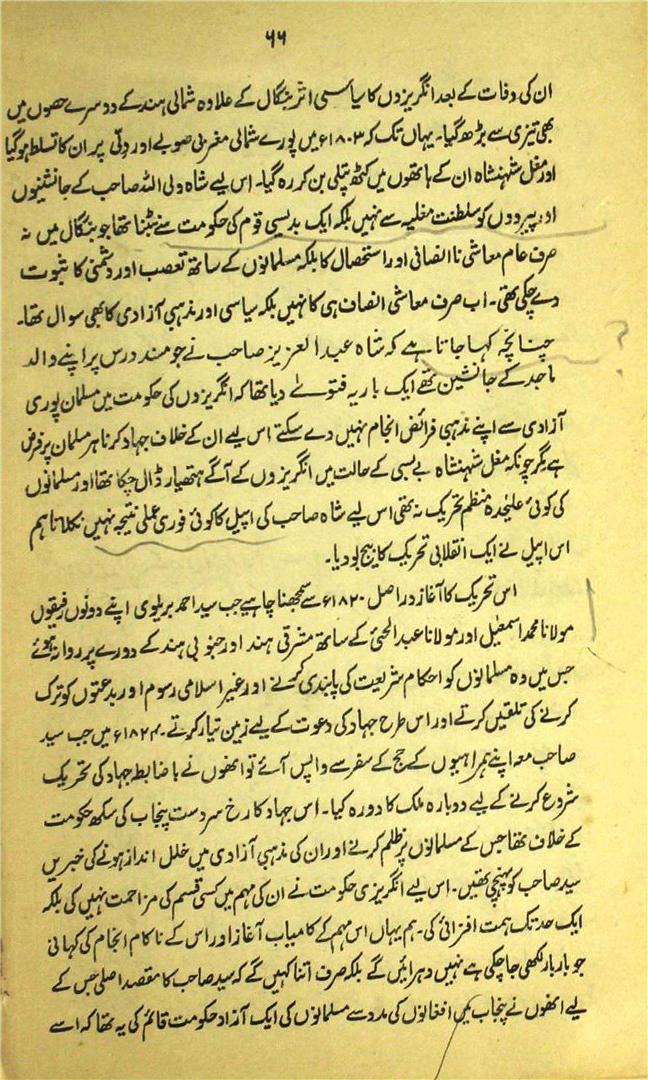 ۶۶
ان کی وفات کے بعد انگریزوں کا سیاسی اثر بنگال کے علاوہ شمالی ہند کے دوسرے حصوں میں
بھی تیزی سے بڑھ گیا۔ یہاں تک کہ ۱۸۰۳ء میں پورے شمالی مغربی صوبے اور دلّی پر ان کا تسلط ہوگیا
اور مغل شہنشاہ ان کے ہاتھوں میں کٹھ پتلی بن کر رہ گیا۔ اس لیے شاہ ولی اللہ صاحب کے جانشینوں
اور پیرووں کو سلطنت مغلیہ سے نہیں بلکہ ایک بدیسی قوم کی حکومت سے نبٹنا تھا جو بنگال میں نہ
صرف عام معاشی ناانصافی اور استحصال کا بلکہ مسلمانوں کے ساتھ تعصب اور دشمنی کا ثبوت
دے چکی تھی۔ اب صرف معاشی انصاف ہی کا نہیں بلکہ سیاسی اور مذہبی آزادی کا بھی سوال تھا۔
چنانچہ کہا جاتا ہے کہ شاہ عبدالعزیز صاحب نے جو مسند درس پر اپنے والد
ماجد کے جانشین تھے ایک بار یہ فتوےٰ دیا تھا کہ انگریزوں کی حکومت میں مسلمان پوری
آزادی سے اپنے مذہبی فرائض انجام نہیں دے سکتے اس لیے ان کے خلاف جہاد کرنا ہر مسلمان پر فرض
ہے مگر چونکہ مغل شہنشاہ بے بسی کے حالت میں انگریزوں کے آگے ہتھیار ڈال چکا تھا اور مسلمانوں
کی کوئی علیٰحدہ منظم تحریک نہ تھی اس لیے شاہ صاحب کی اپیل کا کوئی فوری عملی نتیجہ نہیں نکلا تاہم
اس اپیل نے ایک انقلابی تحریک کا بیج بو دیا۔
اس تحریک کا آغاز دراصل ۱۸۲۰ء سے سمجھنا چاہیے جب سید احمد بریلوی اپنے دونوں رفیقوں
مولانا محمد اسمٰعیل اور مولانا عبدالحئی کے ساتھ مشرقی ہند اور جنوبی ہند کے دورے پر روانہ ہوئے
جس میں وہ مسلمانوں کو احکام شریعت کی پابندی کرنے اور غیر اسلامی رسوم اور بدعتوں کو ترک
کرنے کی تلقین کرتے اور اس طرح جہاد کی دعوت کے لیے زمین تیار کرتے۔ ۱۸۲۴ء میں جب سید
صاحب معہ اپنے ہمراہیوں کے حج کے سفر سے واپس آئے تو انھوں نے باضابطہ جہاد کی تحریک
شروع کرنے کے لیے دوبارہ ملک کا دورہ کیا۔ اس جہاد کا رخ سردست پنجاب کی سکھ حکومت
کے خلاف تھا جس کے مسلمانوں پر ظلم کرنے اور ان کی مذہبی آزادی میں خلل انداز ہونے کی خبریں
سید صاحب کو پہنچی تھیں۔ اس لیے انگریزی حکومت نے ان کی مہم میں کسی قسم کی مزاحمت نہیں کی بلکہ
ایک حد تک ہمت افزائی کی۔ ہم یہاں اس مہم کے کامیاب آغاز اور اس کے ناکام انجام کی کہانی
جو بار بار لکھی جا چکی ہے نہیں دہرائیں گے بلکہ صرف اتنا کہیں گے کہ سید صاحب کا مقصد اصلی جس کے
لیے انھوں نے پنجاب میں افغانوں کی مدد سے مسلمانوں کی ایک آزاد حکومت قائم کی یہ تھا کہ اسے